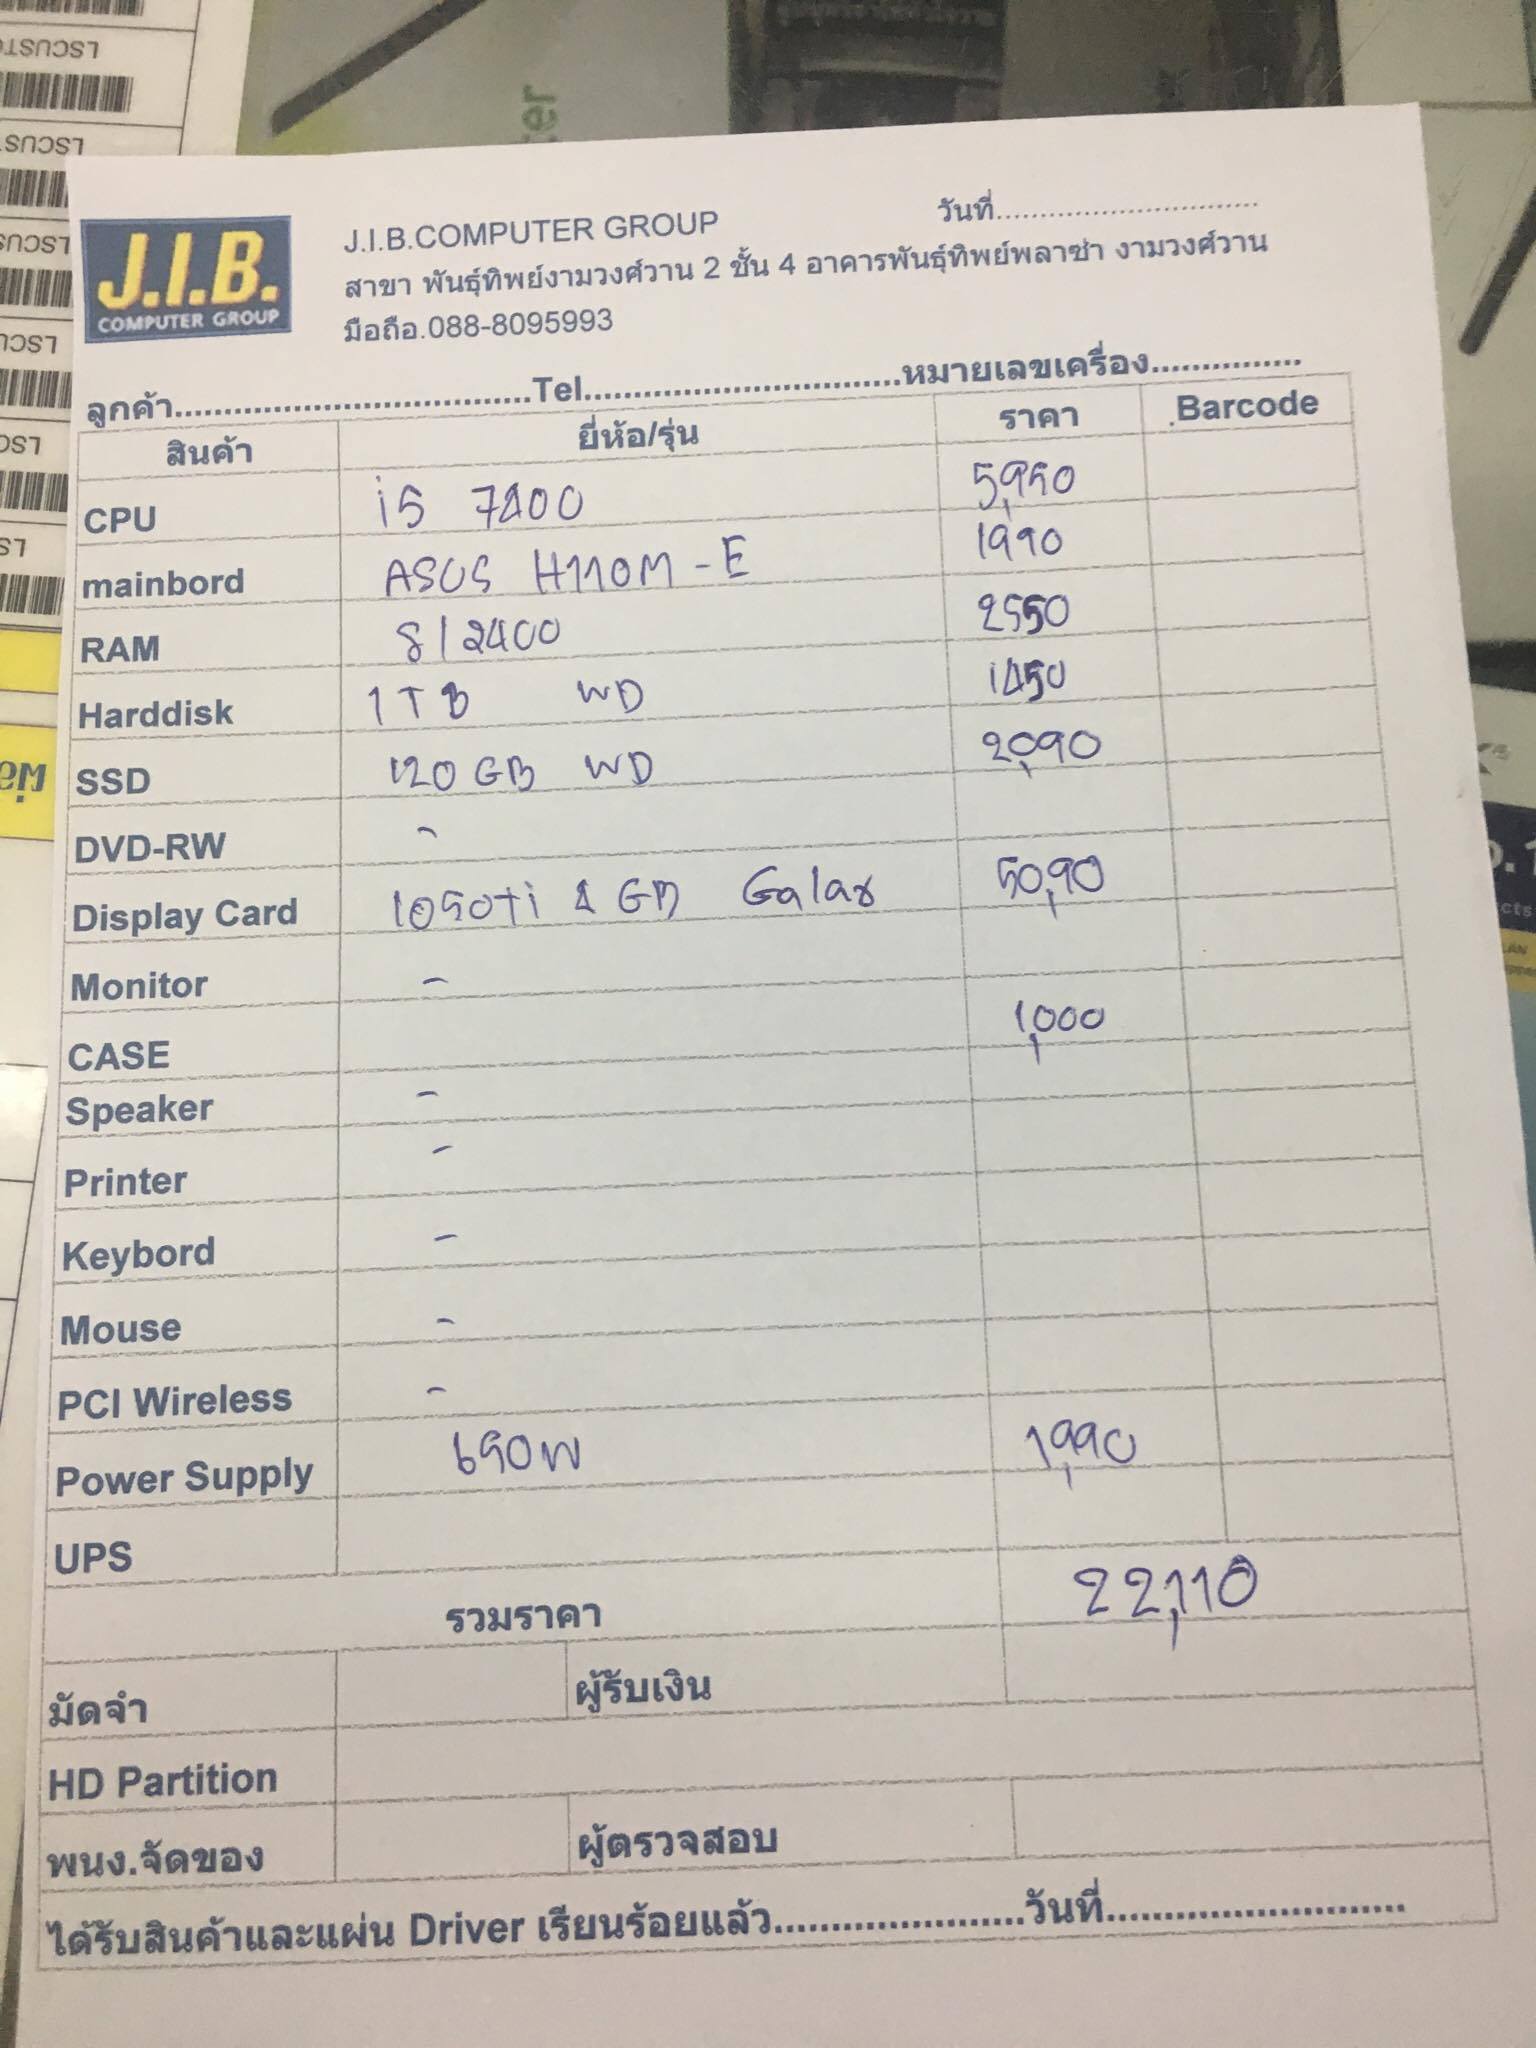 LSCUSTO
LSCUST
J.I.B.
COMPUTER GROUP
J.I.B.COMPUTER GROUP วันที่..............................
สาขา พันธุ์ทิพย์งามวงศ์วาน 2 ชั้น 4 อาคารพันธุ์ทิพย์พลาซ่า งามวงศ์วาน
มือถือ.088-8095993
ลูกค้า...................................Tel...............................หมายเลขเครื่อง...............
สินค้า ยี่ห้อ/รุ่น ราคา .Barcode
CPU i5 7400 5,950
mainbord ASUS H110M-E 1990
RAM 8/2400 2550
Harddisk 1TB WD 1450
SSD 120GB WD 2,090
DVD-RW -
Display Card 1050ti 4GB Galax 50,90
Monitor -
CASE 1,000
Speaker -
Printer -
Keybord -
Mouse -
PCI Wireless -
Power Supply 650W 1,990
UPS
รวมราคา 22,110
มัดจำ ผู้รับเงิน
HD Partition
พนง.จัดของ ผู้ตรวจสอบ
ได้รับสินค้าและแผ่น Driver เรียนร้อยแล้ว........................วันที่.............................